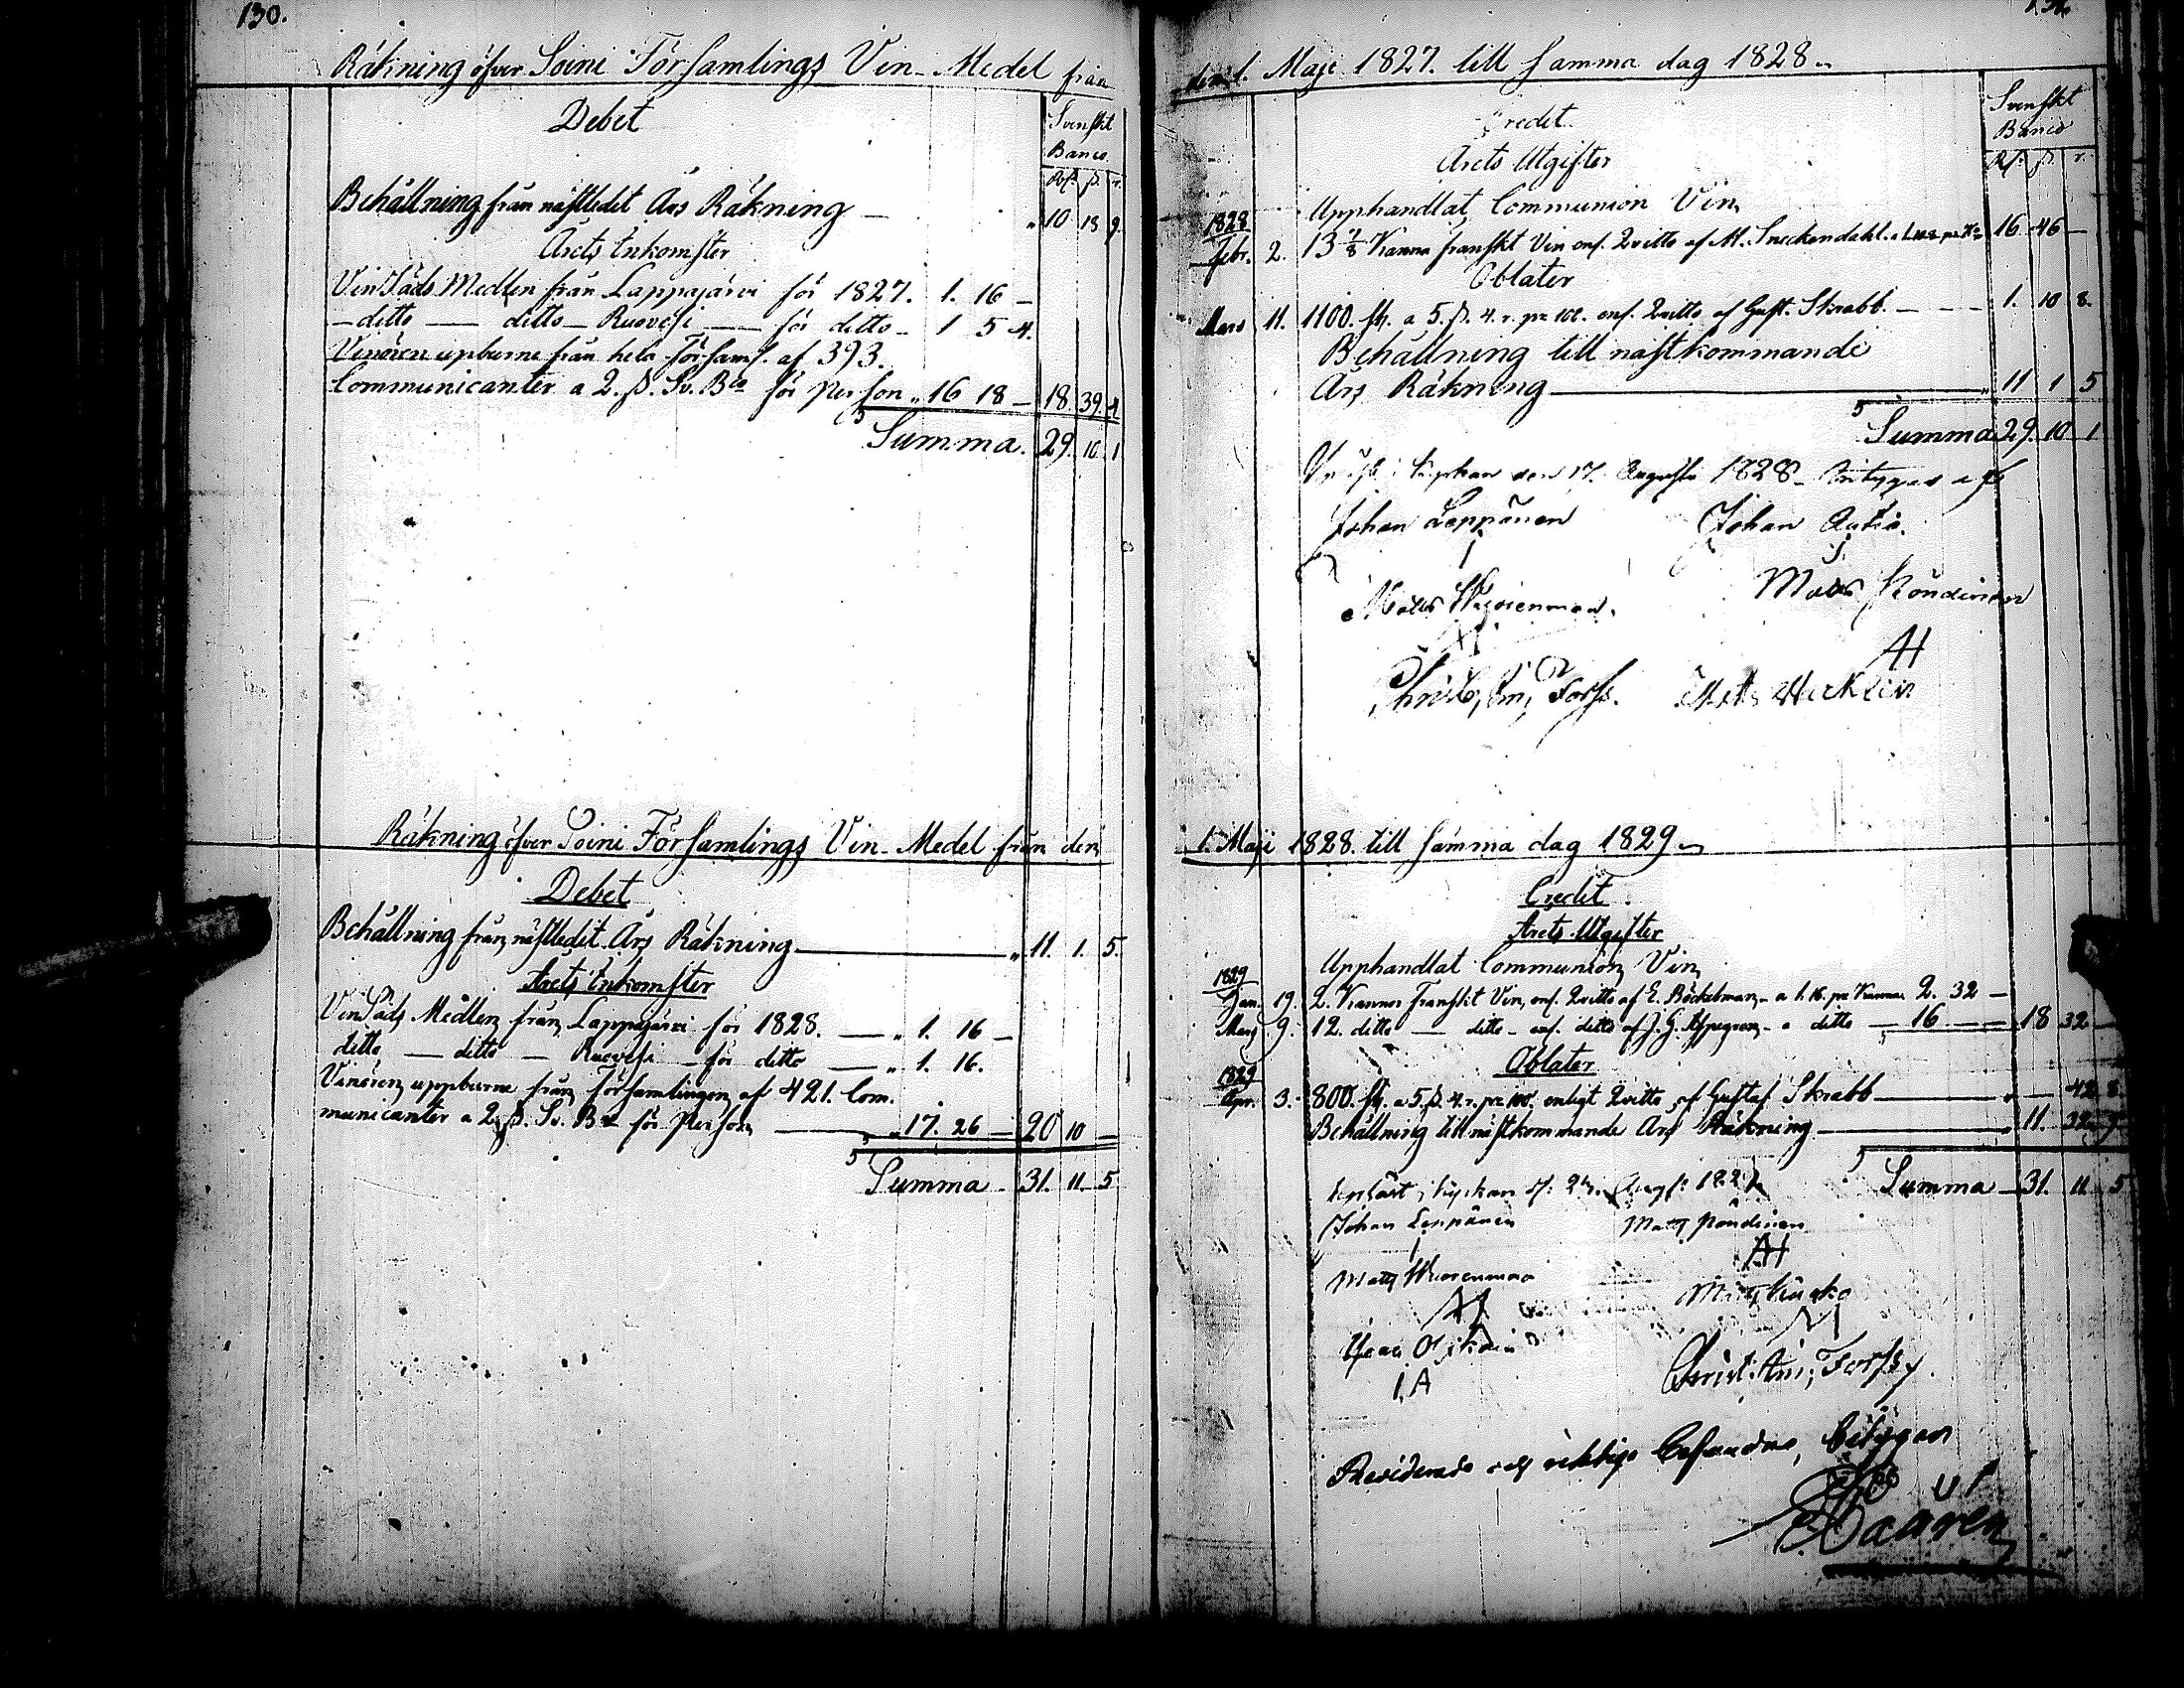 130.
Räkning öfver Soini Församlings Vin-Medel från
Debet
Svenskt
Banco.
Rd. ß. r.
Behållning från nästledet Års Räkning — 10 18 9
Årets Inkomster
Vin Säds Medlen från Lappajärvi för 1827. 1. 16 —
— ditto — ditto — Ruovesi — för ditto — 1 5 4.
Vinören upburne från hela Församl. af 393.
Communicanter a 2. ß. Sv. Bco för Person „ 16 18 — 18. 39. 4
Summa. 29. 10 1
Räkning öfver Soini Församlings Vin-Medel från den
Debet
Behållning från nästledit Års Räkning — „ 11. 1. 5.
Årets Inkomster
Vin Säds Medlen från Lappajärvi för 1828. — „ 1. 16 —
ditto — ditto — Ruovesi — för ditto — „ 1. 16.
Vinören uppburne från Församlingen af 421. Com-
municanter a 2 ß. Sv. Bco för Person — „ 17. 26 — 20 10 —
Summa 31. 11 5
den 1. Maji 1827. till samma dag 1828.
Credit
Svenskt
Banco
Årets Utgifter
Rd. ß. r.
Upphandlat Communion Vin
1828
Febr. 2. 13 7/8 Kanna franskt Vin enl. Qvitto af M. Sneckendahl. 16 46 —
Oblater
Mars 11. 1100. st. a 5. ß. 4. r. pr 100. enl. Qvitto af Gust. Skrabb. — 1. 10 8.
Behållning till nästkommande
Års Räkning — „ 11 1 5
Summa 29. 10 1
den 17. Augusti 1828
Johan Leppänen Johan Autio.
Matts Wuorenmaa. Matts Pöndinen
AH
Christ. Forss. Matts Hacklin
1. Maji 1828. till samma dag 1829
Credit
Årets Utgifter
Upphandlat Communion Vin
1829
Jan. 19. 2. Kannor Franskt Vin, enl. Qvitto af E. Böckelman, a 1. 16. pr Kanna 2. 32 —
Mars 9. 12. ditto — ditto — enl. ditto af J. G. — a ditto — 16 — 18 32 —
Oblater
1829
Apr. 3. 800. st. a 5 ß. 4. r. pr 100. enligt Qvitto af Gustaf Skrabb — „ — 42 8.
Behållning till nästkommande Års Räkning — „ 11. 32 9
Summa — 31. 11 5
Johan Leppänen Matts Pöndinen
AH
Matts Wuorenmaa Matts
I A Christ. Forss
Reviderade och riktige befundne, betygar